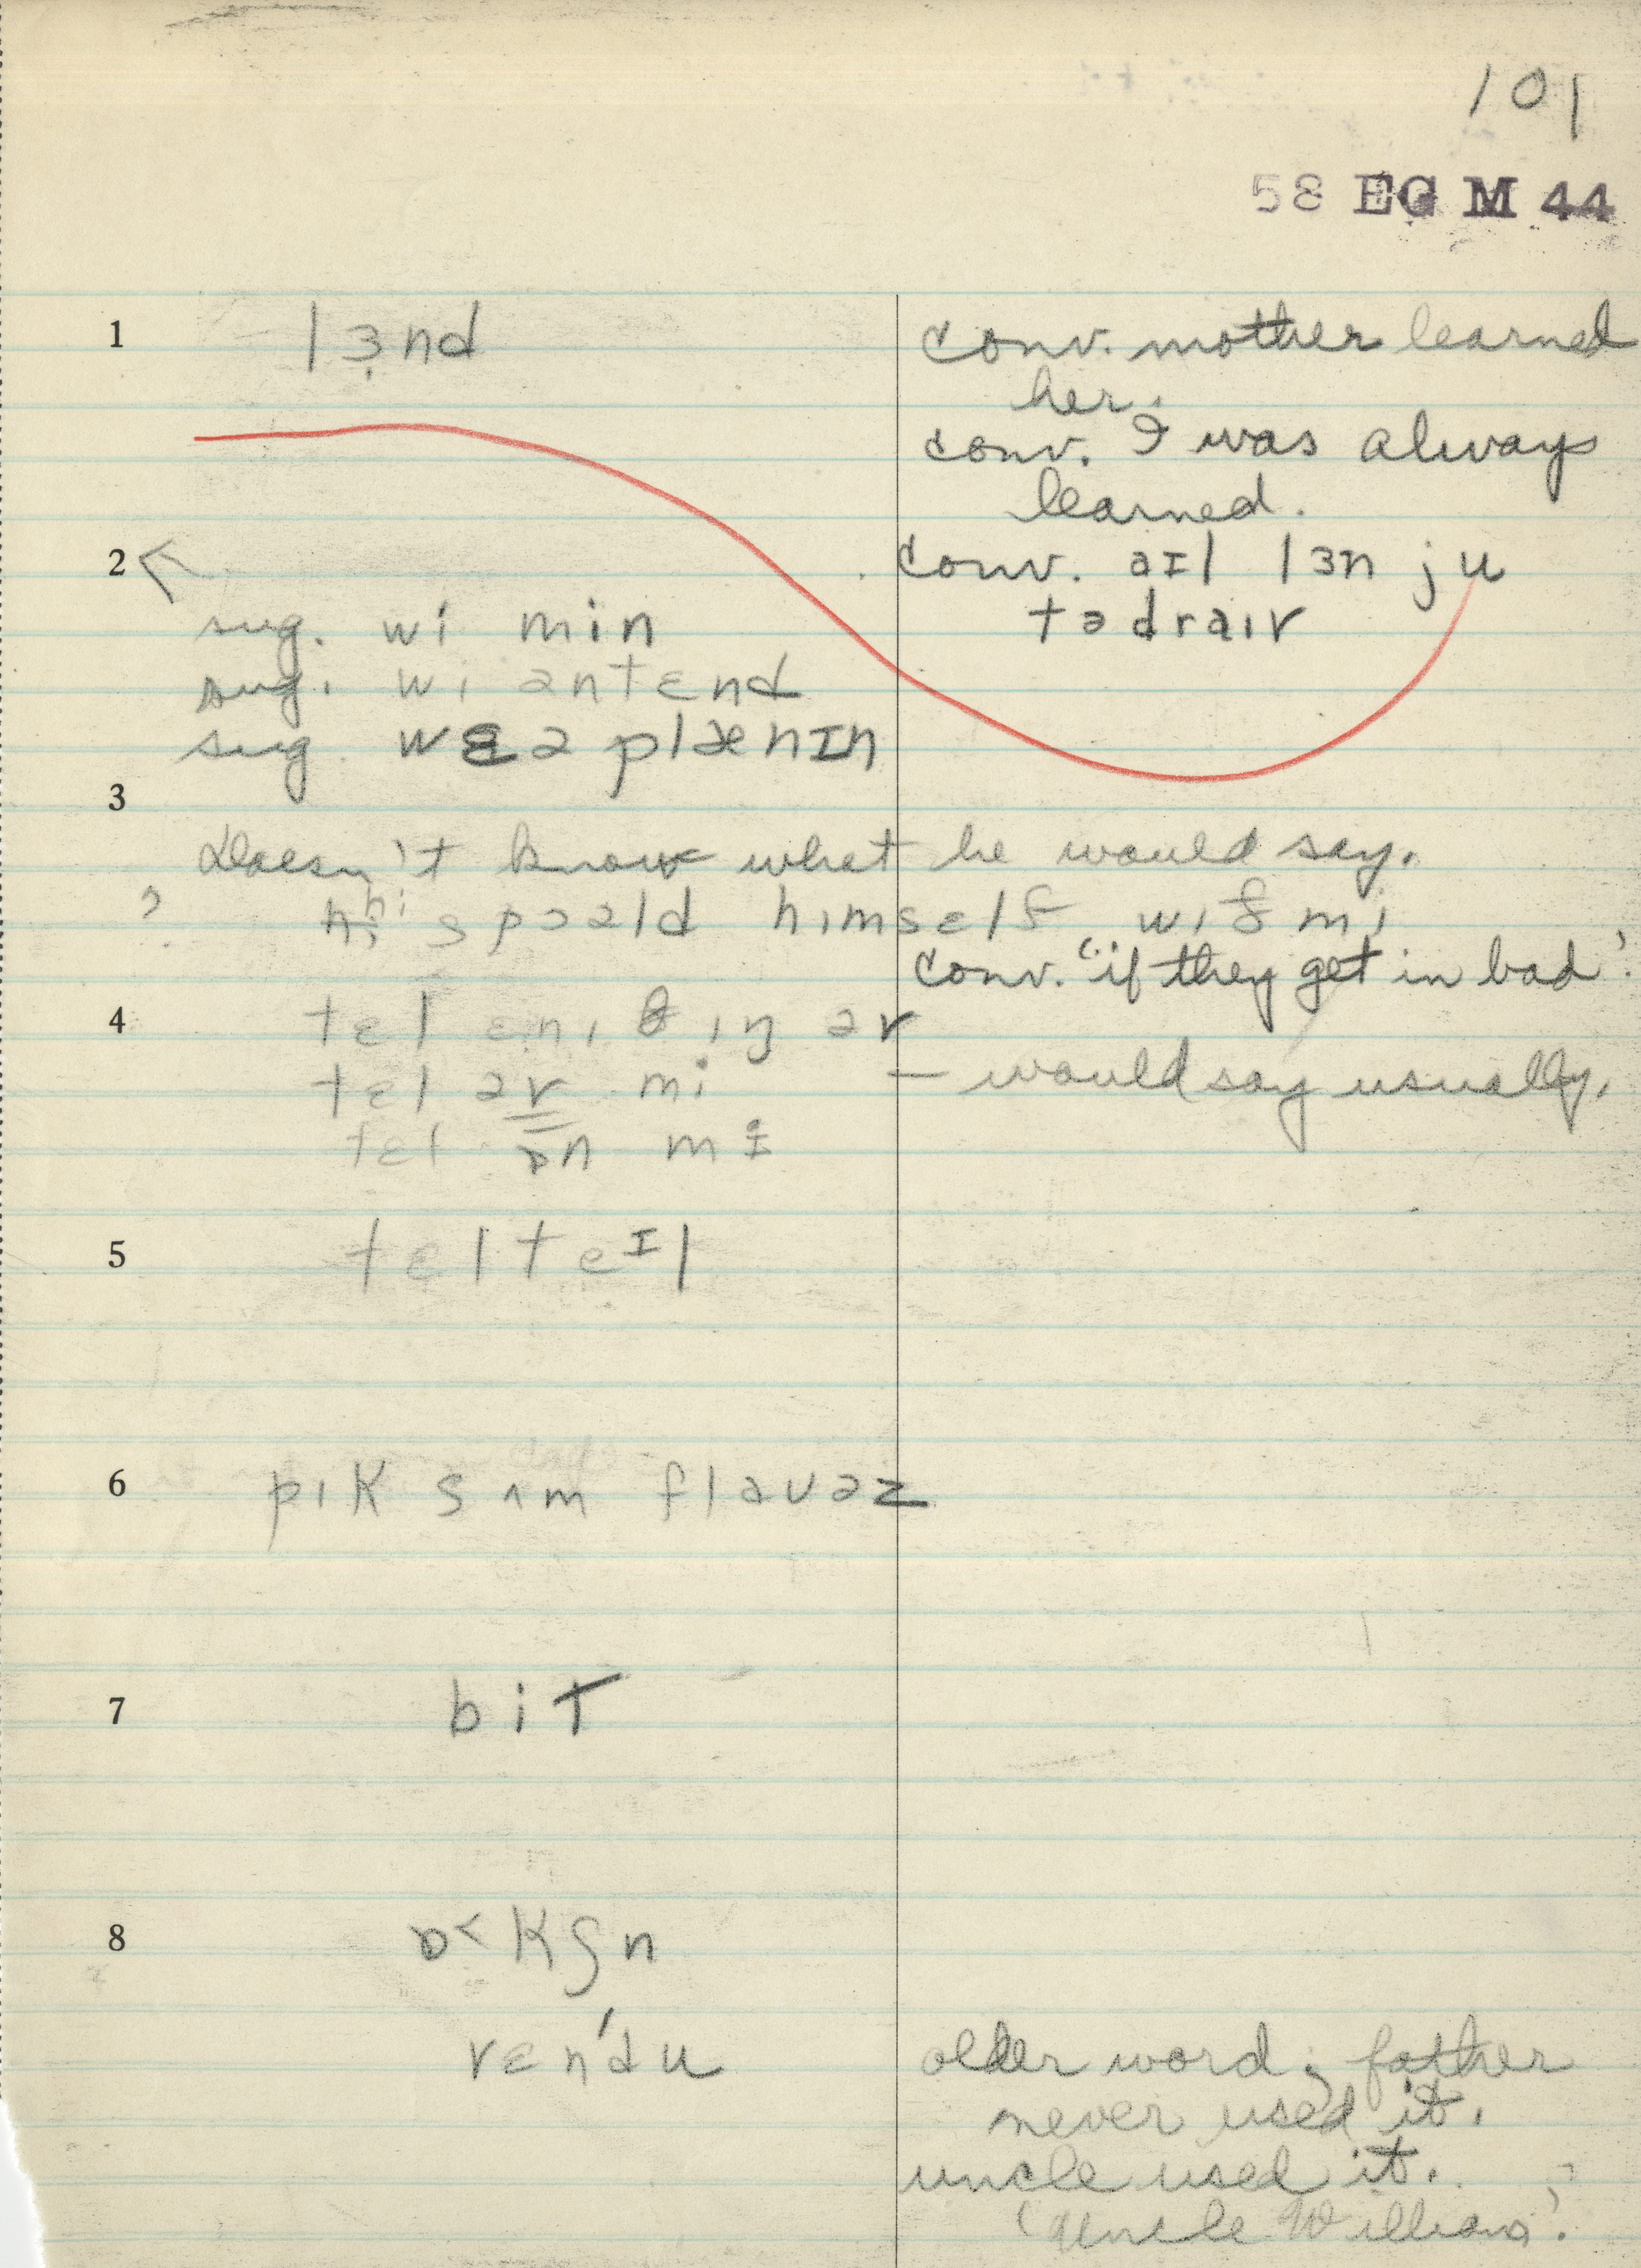 101
58 EG M 44
1 lɜ̣nd conv. mother learned
her.
conv. I was always
learned.
2 conv. aɪl lɜn ju
tə draɪv
sug. wi min
sug. wi əntɛnd
sug. wɛə plænɪn
3
Doesn't know what he would say.
? hi spɔəld himsɛlf wiθ mi
conv. "if they get in bad".
4 tɛl ɛniθiŋ əv
tɛl əv mi — would say usually.
tɛl ɒn mi
5 tɛlteɪl
6 pik sʌm flaʊəz
7 bit
8 ɒ˂kʃn
vɛn'du older word; father
never used it.
uncle used it.
'Uncle William'.